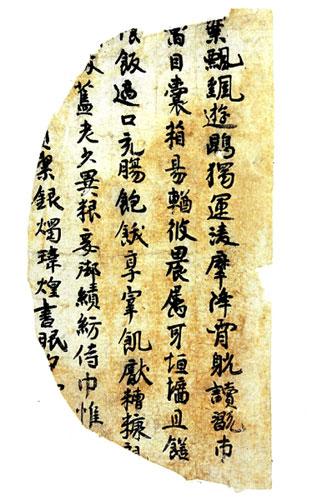 葉飄颻遊鵾獨運淩摩降霄躭讀翫市
寓目囊箱易輶攸畏属耳垣墻且饍
飯適口充腸飽飫享宰飢厭糟糠
舊老少異粮妾御績紡侍巾帷
潔銀燭煒煌晝眠夕